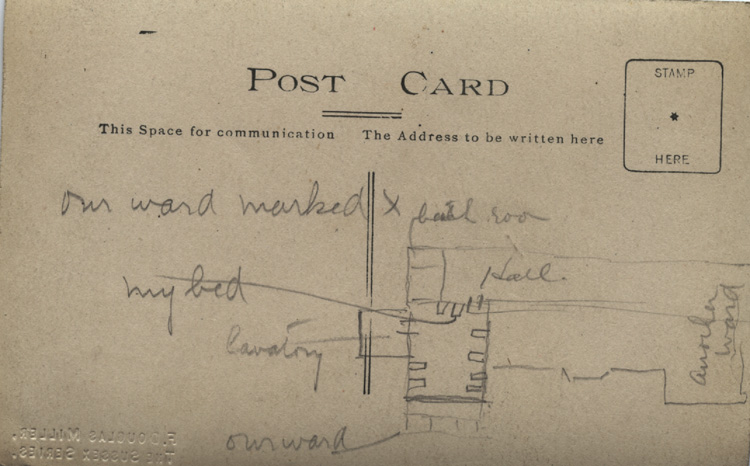 POST CARD
This Space for communication The Address to be written here
STAMP
*
HERE
our ward marked X
bath roo
my bed
Hall.
lavatory
another
ward
our ward
F. DOUGLAS MILLER.
THE SUSSEX SERIES.